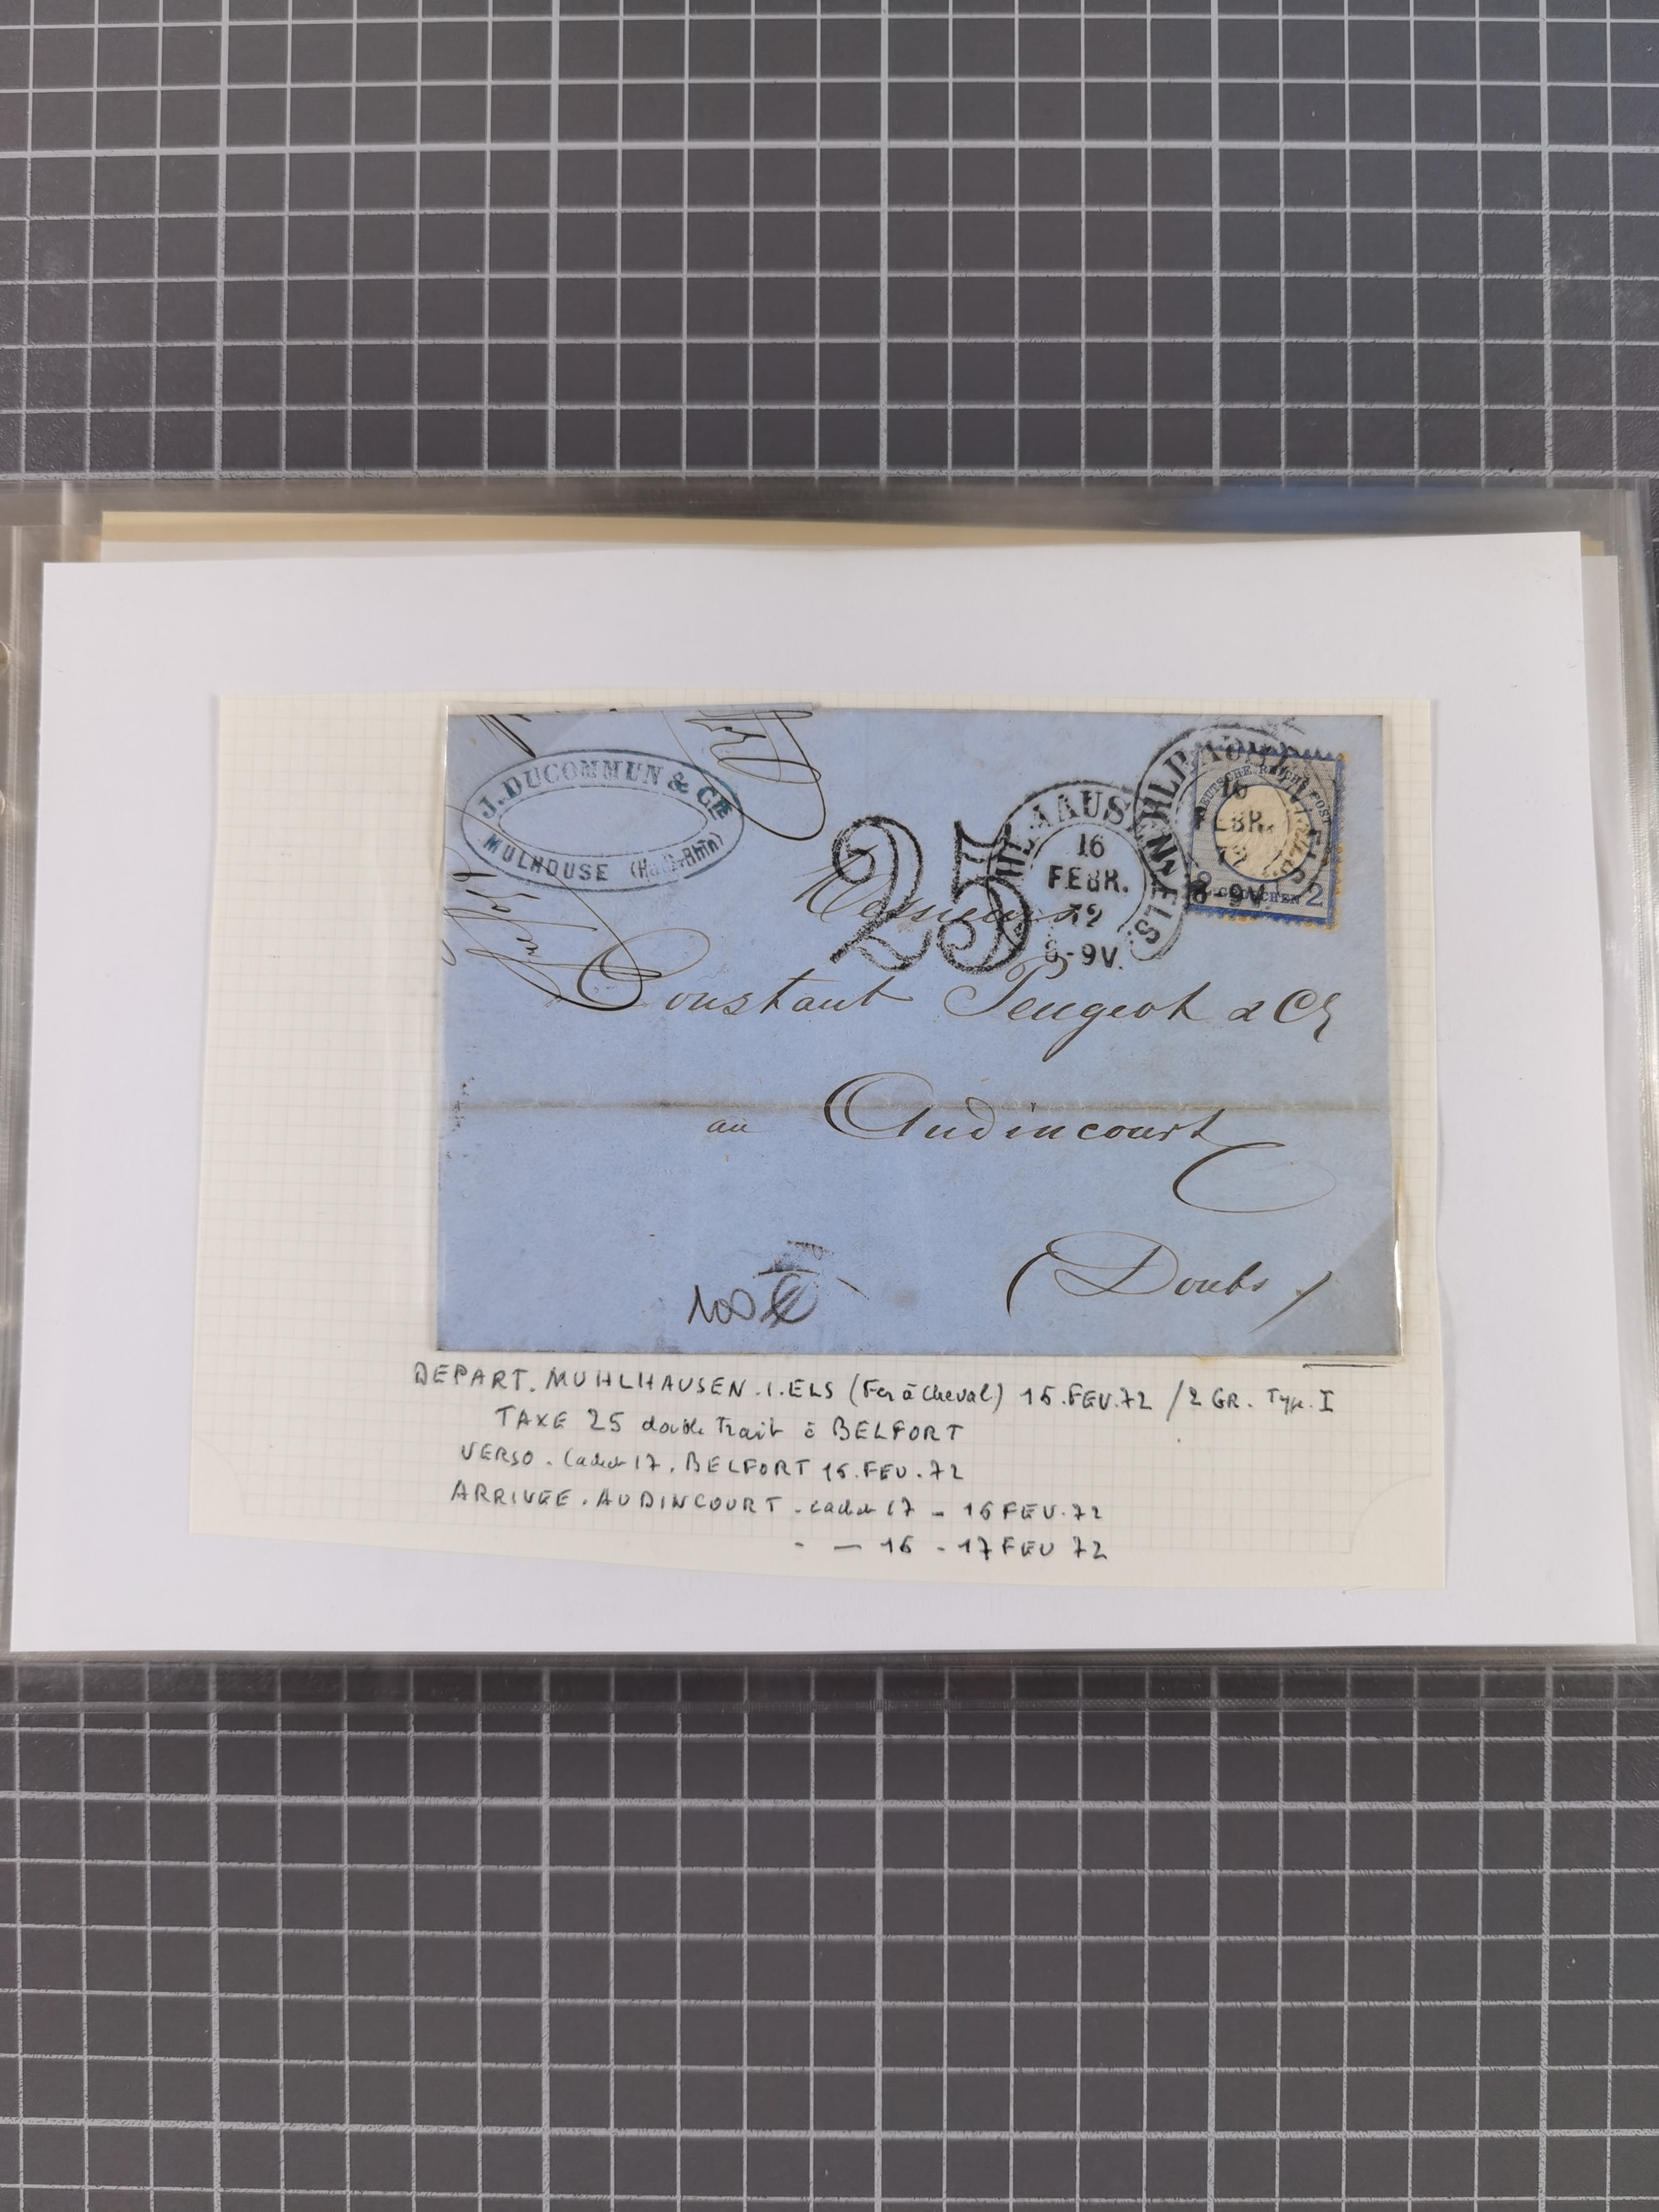 J. DUCOMMUN & CIE
MULHOUSE (Haut-Rhin)
25
16
FEBR.
72
8-9V.
DEUTSCHE REICHS-POST
16
FEBR.
72
8-9V.
2 GROSCHEN 2
Messieurs
Constant Peugeot & Cie
au Audincourt
(Doubs)
100 €
DEPART. MUHLHAUSEN.I.ELS (Fer à cheval) 16.FEV.72 / 2 GR. Type. I
TAXE 25 double Trait à BELFORT
VERSO. Cachet 17. BELFORT 16.FEV.72
ARRIVEE. AUDINCOURT - cachet 17 - 16 FEV.72
- — 16 - 17 FEV 72